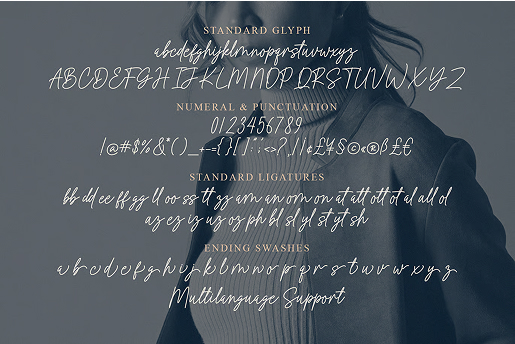 STANDARD GLYPH
abcdefghijklmnopqrstuvwxyz
ABCDEFGHIJKLMNOPQRSTUVWXYZ
NUMERAL & PUNCTUATION
0123456789
STANDARD LIGATURES
bb dd ee ff gg ll oo ss tt zz am an om on at att ott ot al all ol
ENDING SWASHES
a b c d e f g h i j k l m n o p q r s t u v w x y z
Multilanguage Support